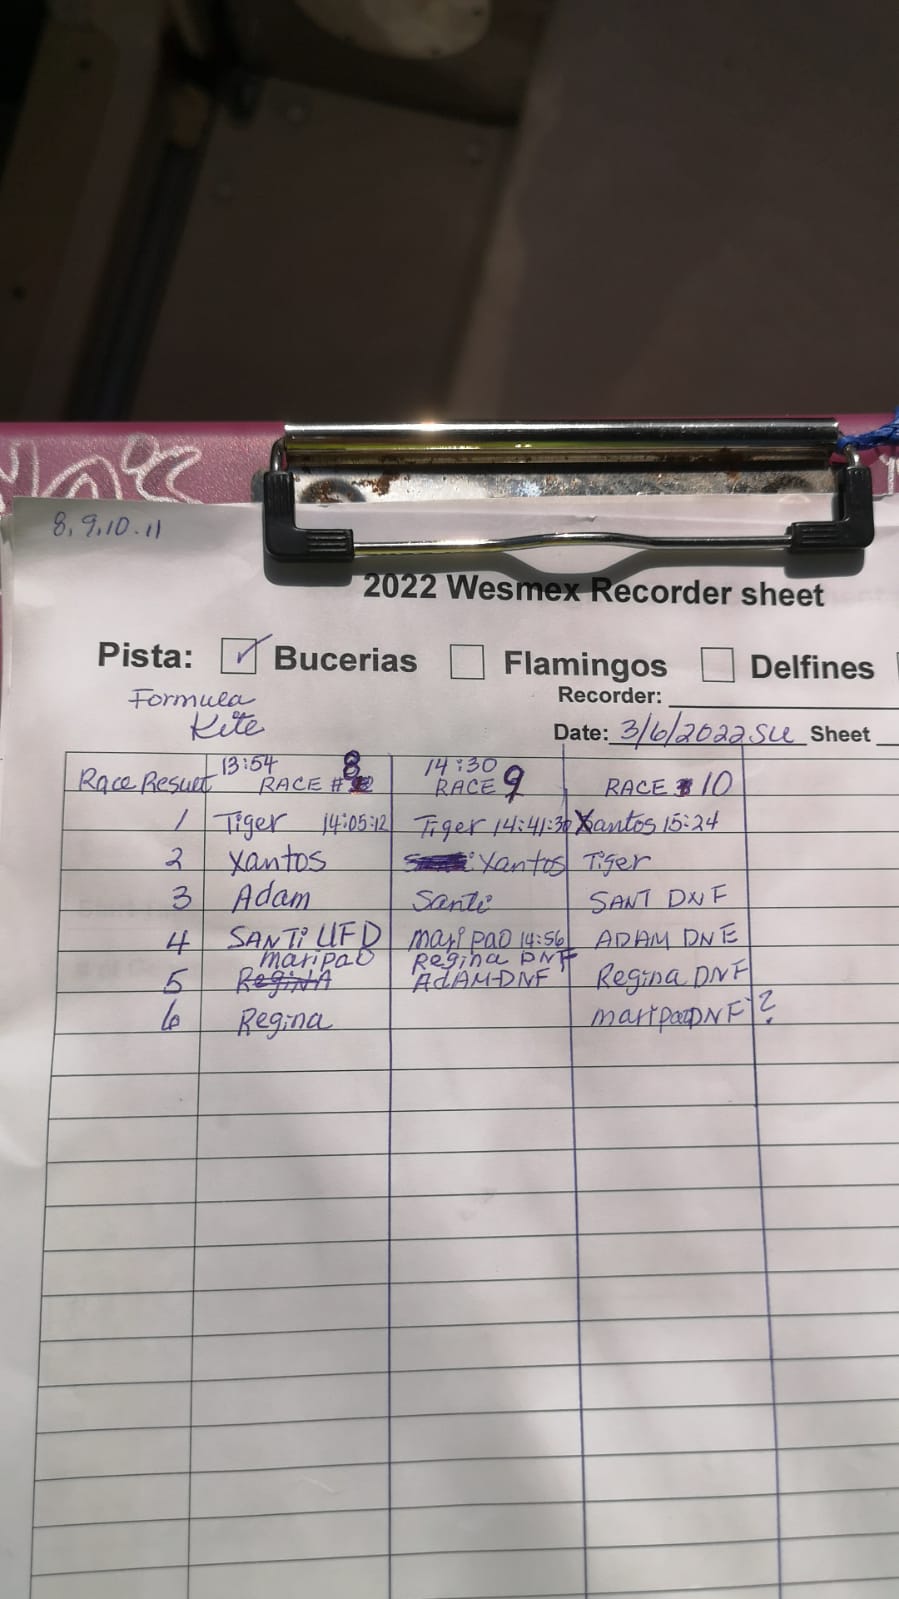 8, 9, 10. 11
2022 Wesmex Recorder sheet
Pista: Bucerias Flamingos Delfines
Formula Recorder:
Kite Date: 3/6/2022 Sheet
13:54 8 14:30
Race Result RACE # RACE 9 RACE 10
1 Tiger 14:05:12 Tiger 14:41:30 Xantos 15:24
2 Xantos Xantos Tiger
3 Adam Santi SANT DNF
4 SANTi UFD maripao 14:56 ADAM DNF
maripao Regina DNF
5 Regina AdAM-DNF Regina DNF
6 Regina maripao DNF ?